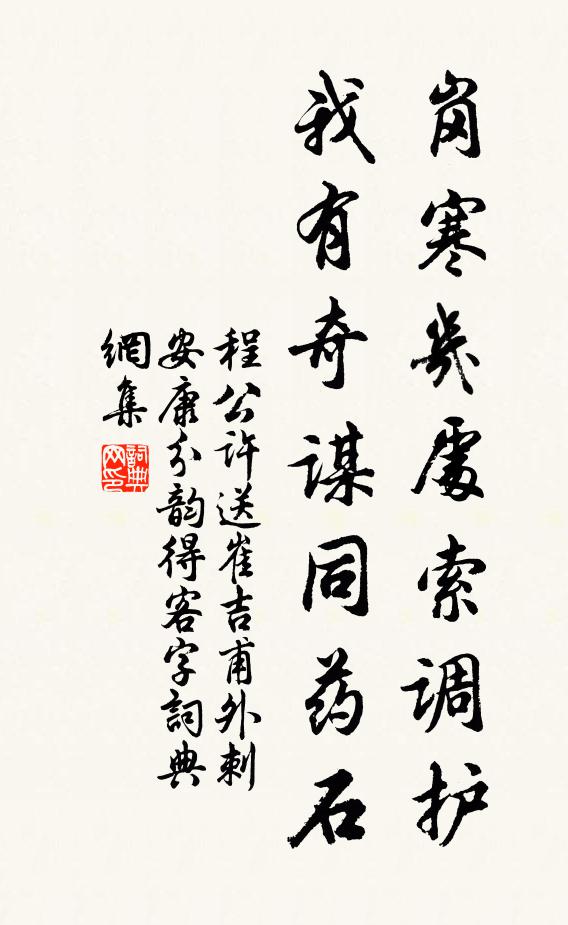 岗寒几处索调护
我有奇谋同药石
程公许送崔吉甫外刺
安康分韵得客字詞典
網集
詞典
网印